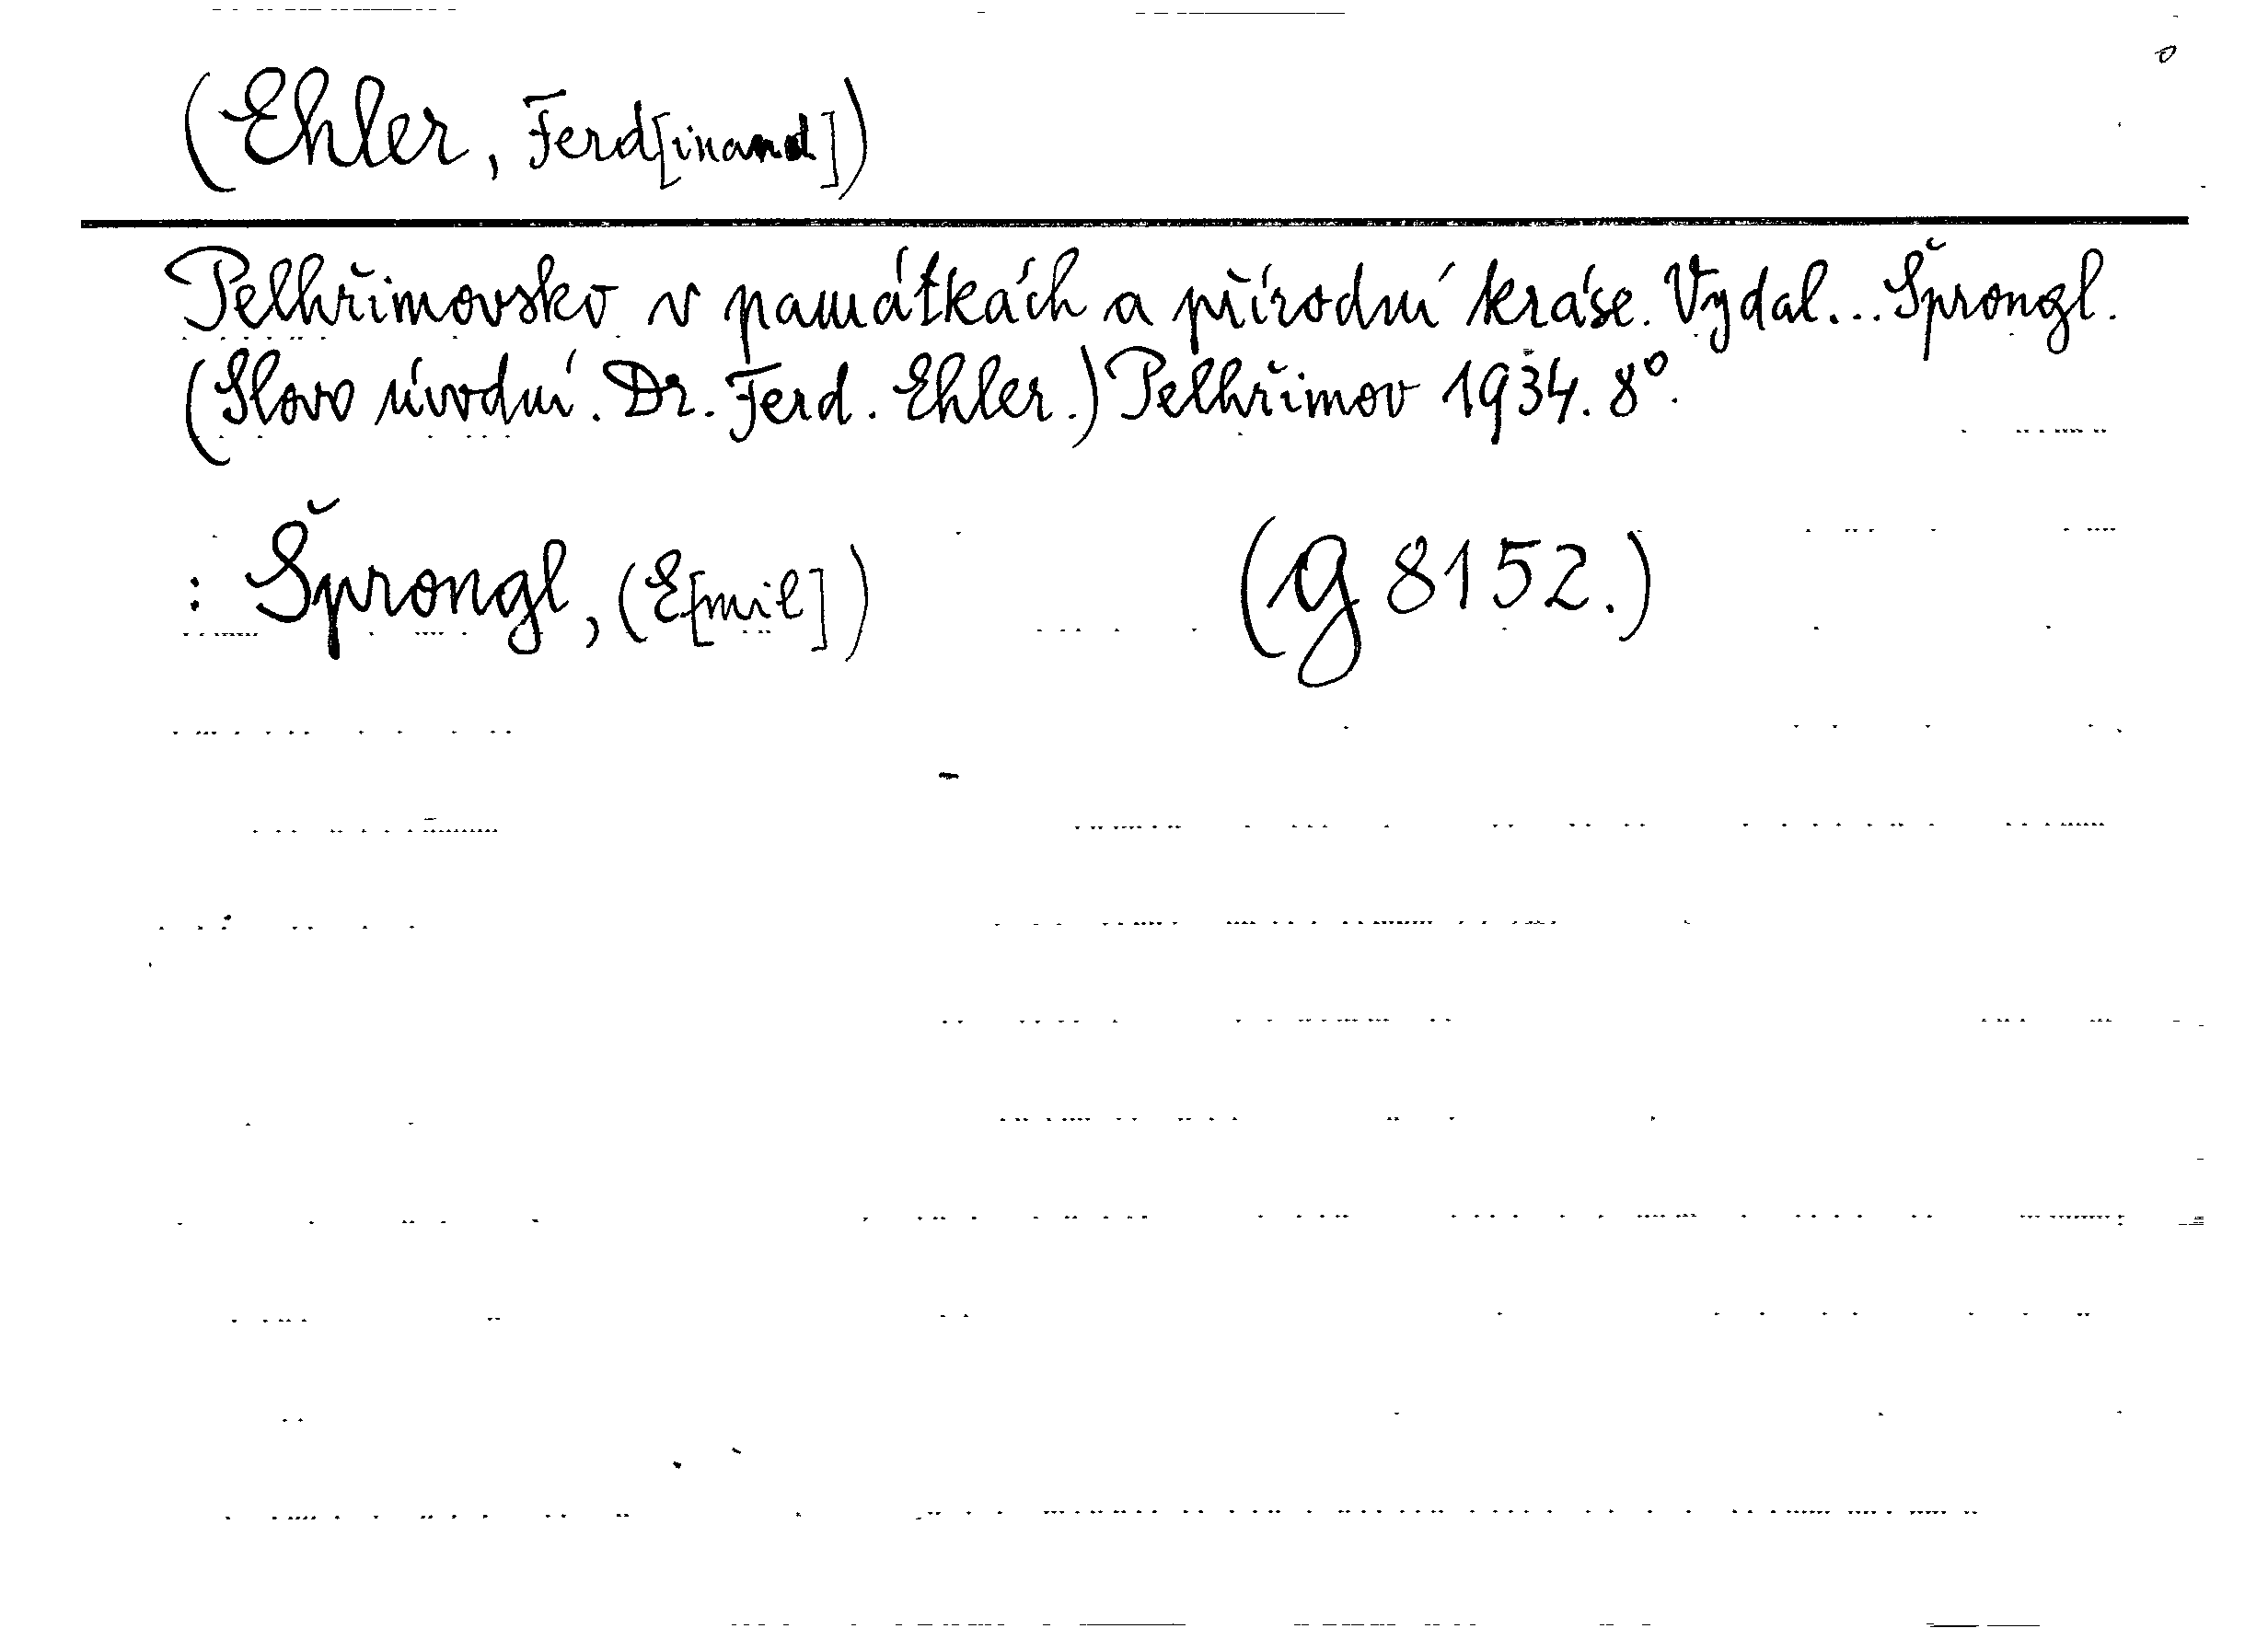 (Ehler, Ferd[inand])
Pelhřimovsko v památkách a přírodní kráse. Vydal... Šprongl.
(Slovo úvodní. Dr. Ferd. Ehler.) Pelhřimov 1934. 8°.
: Šprongl, (E[mil]) (G 8152.)